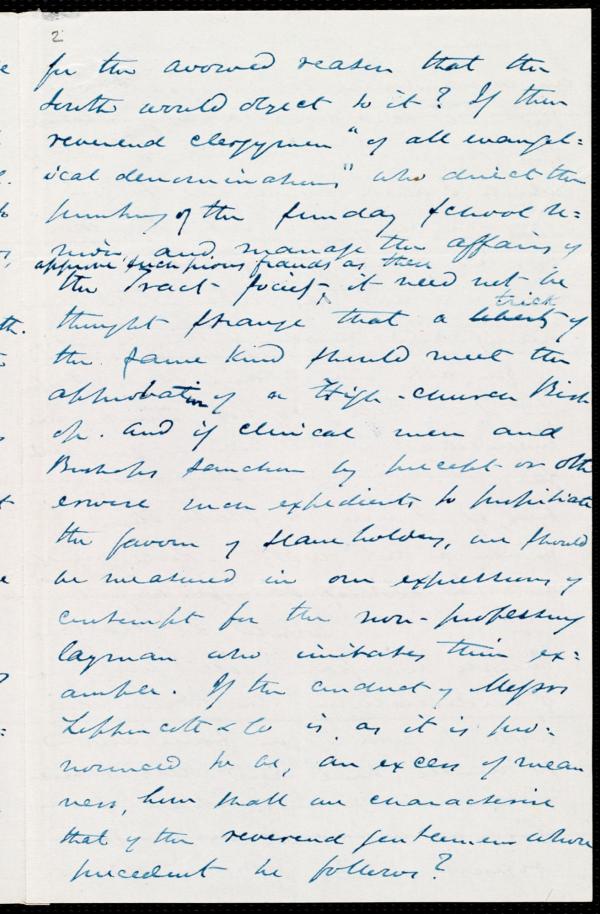 2
for the avowed reason that the
South would object to it? If then
reverend clergymen "of all evangel=
ical denominations" who direct the
printing of the Sunday School U=
nion, and manage the affairs of
approve such pious frauds as these
the Tract Society, it need not be
trick
thought strange that a liberty of
the same kind should meet the
approbation of a High-church Bish
op. And if clerical men and
Bishops sanction by precept or oth
erwise such expedients to propitiate
the favour of slaveholders, we should
be measured in our expressions of
contempt for the non-professing
layman who imitates their ex=
ample. If the conduct of Messrs
Lippincott & Co is, as it is pro=
nounced to be, an excess of mean
ness, how shall we characterise
that of the reverend gentlemen whose
precedent he follows?